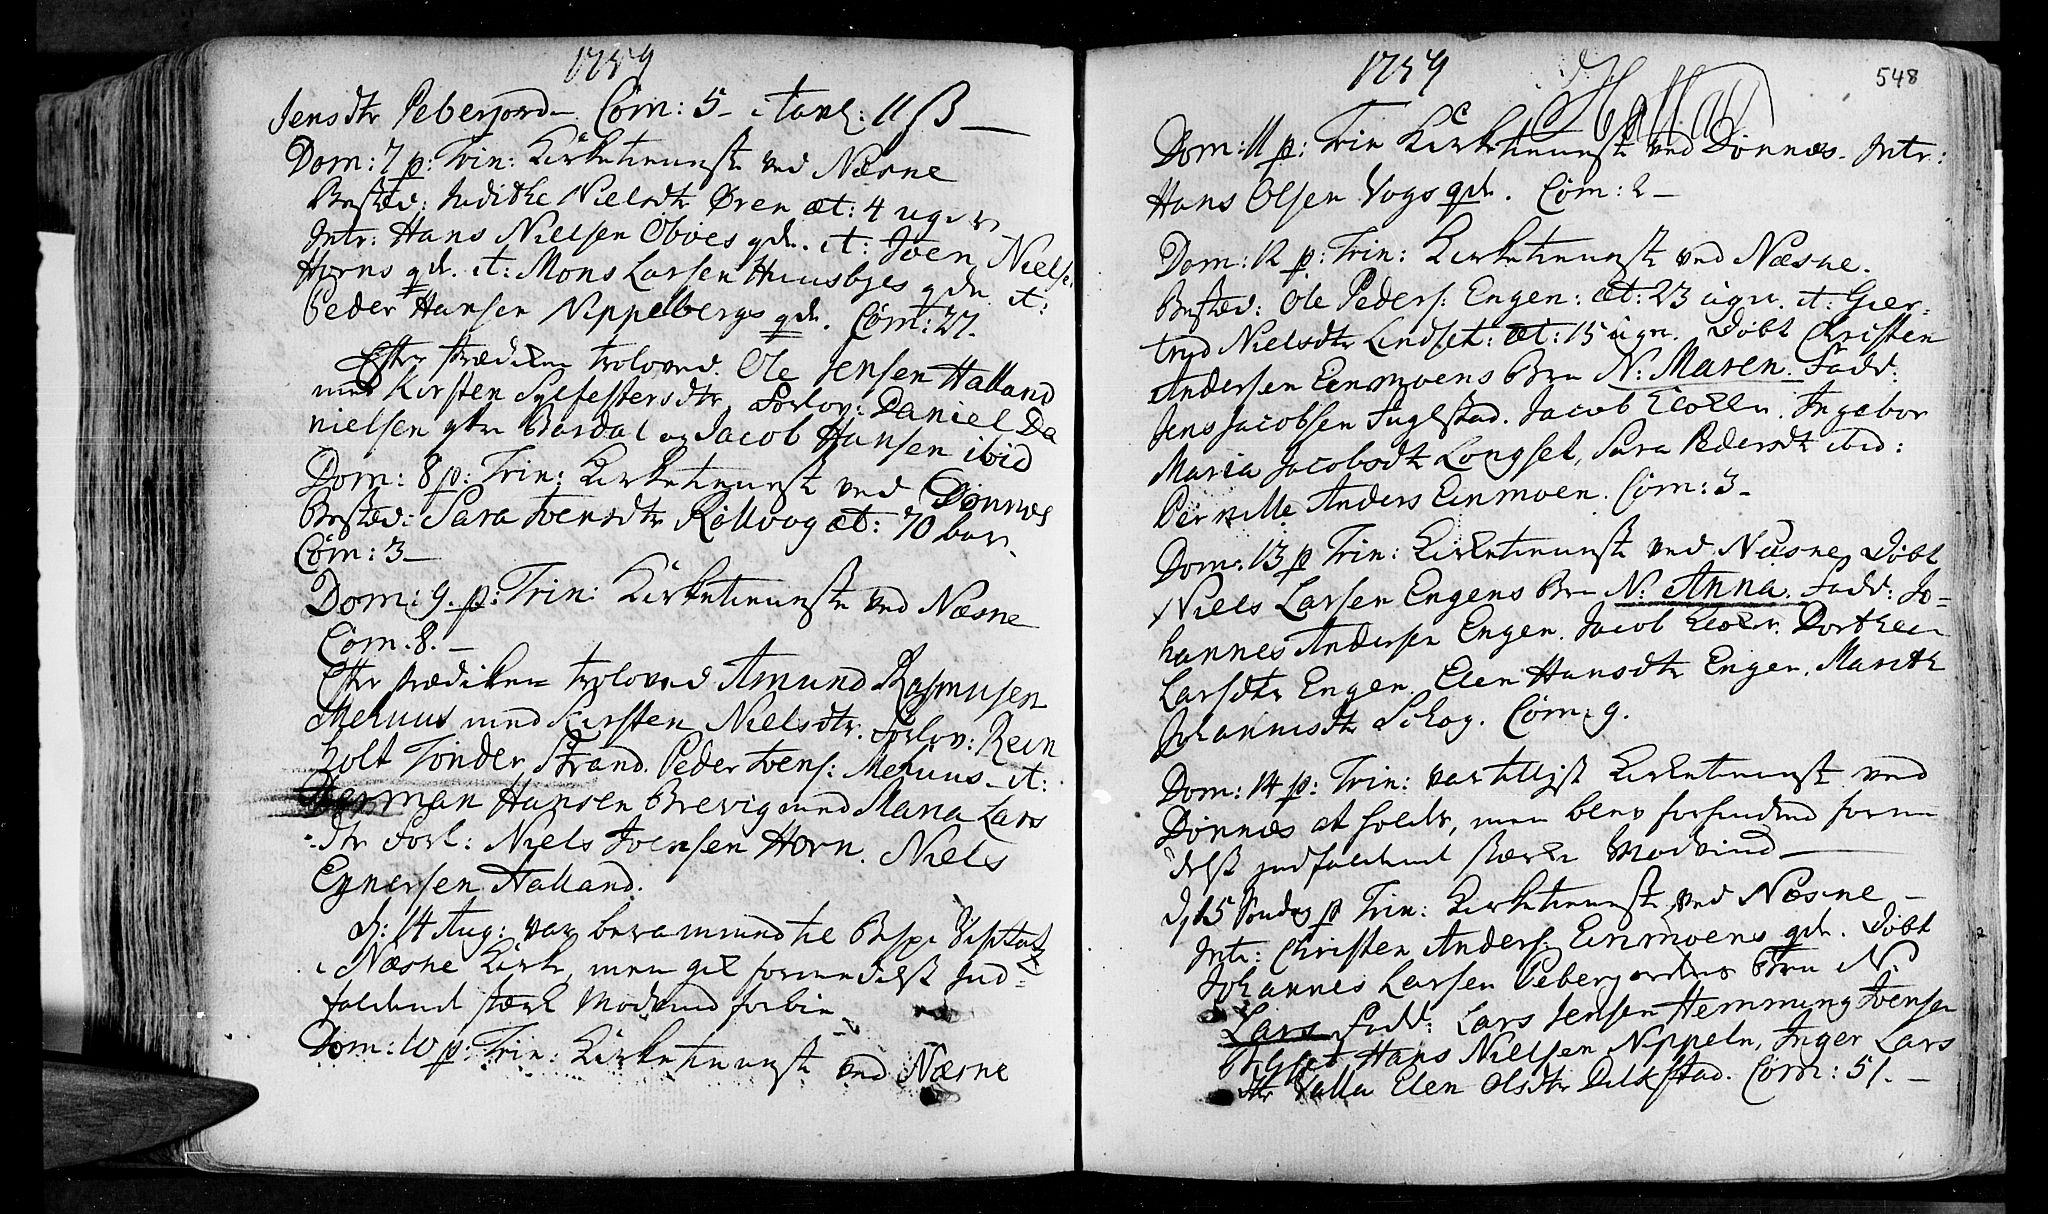 1759
Jensdtr Peberjord. Com: 5 – Tavl: 11 ß –
Dom: 7 p: Trin: Kirketieniste ved Næsne
Bested: Judithe Nielsdtr Øren æt: 4 uger
Intr: Hans Nielsen Oboes qde. it: Joen Nielse
Horns qde. it: Mons Larsen Huusbyes qde. it:
Peder Hansen Nippelbergs qde. Com: 27.
Efter Prædiken troloved Ole Jensen Halland
med Kirsten Sylfestersdtr Forlov: Daniel Da
nielsen Bardal og Jacob Hansen ibid
Dom: 8 p: Trin: Kirketieniste ved Dønnæs
Bested: Sara Ivensdtr Rølvog æt: 70 har.
Com: 3 –
Dom: 9. p: Trin: Kirketieniste ved Næsne
Com. 8. –
Efter Prædiken troloved Amund Rasmusen
Mehuus med Kirsten Nielsdtr. Forlov: Rein
holt Tønder Strand. Peder Ivens: Mehuus – it:
Herman Hansen Brevig med Maria Lars
dtr Forl: Niels Joensen Horn. Niels
Eynersen Halland.
d: 14 Aug: var berammed til Bispe Visitatz
i Næsne Kirke, men gik formedelst Ind-
faldend stærk Modvind forbi
Dom: 10 p: Trin: Kirketieniste ved Næsne
1759
548
Dom: 11 p: Trin Kirketieniste ved Dønnæs. Intr:
Hans Olsen Vogs qde. Com: 2 –
Dom: 12 p: Trin: Kirketieniste ved Næsne.
Bested: Ole Peders: Engen: æt: 23 uger. it: Gier-
trud Nielsdtr Lindset: æt: 15 uger. Døbt Christen
Andersen Einmoens Brn N: Maren. Fadd:
Jens Jacobsen Fuglstad. Jacob Klokker. Ingebor
Maria Jacobsdtr Longset, Sara Pedersdtr ibid:
Pernille Anders Einmoen. Com: 3 –
Dom: 13 p Trin: Kirketieniste ved Næsne Døbt
Niels Larsen Engens Brn N: Anna. Fadd: Jo-
hannes Andersen Engen. Jacob Klokker. Dorthea
Larsdtr Engen. Elen Hansdtr Engen. Marith
Johannisdtr Skog. Com: 9.
Dom: 14 p: Trin: var tillyst Kirketieniste ved
Dønnæs at holde, men blev forhindred forme
delst indfaldend stærk Modvind –
d: 15 Søndag p Trin: Kirketieniste ved Næsne –
Intr: Christen Anders: Einmoens qde. Døbt
Johannes Larsen Peberjordens Brn N.
Lars Fadd: Lars Jensen Hemming Ivensen
Hans Nielsen Nippeln, Inger Lars
dtr Valla Elen Olsdtr Dilkstad. Com: 51. –